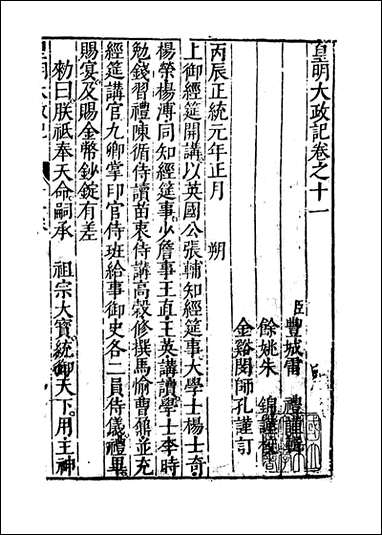 皇明大政記卷之十一
臣豐城雷 禮謹輯
餘姚朱 錦謹校
金谿閔師孔謹訂
丙辰正統元年正月 朔
上御經筵開講以英國公張輔知經筵事大學士楊士奇
楊榮楊溥同知經筵事少詹事王直王英講讀學士李時
勉錢習禮陳循侍讀苗衷侍講高穀修撰馬愉曹鼐並充
經筵講官九卿掌印官侍班給事御史各二員侍儀禮畢
賜宴及賜金幣鈔錠有差
勑曰朕祗奉天命嗣承 祖宗大寶統御天下用主神